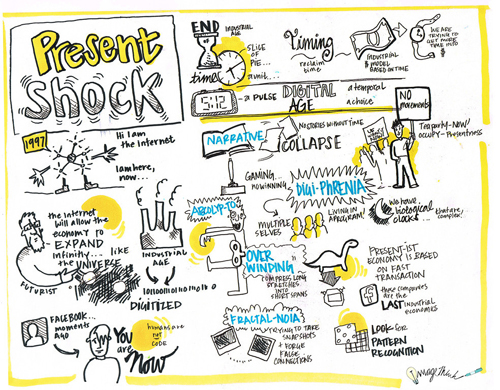 Present
Shock
END
OF
time!
INDUSTRIAL
AGE
SLICE
OF
PIE...
Timing
reclaim
time
INDUSTRIAL
MODEL
BASED ON TIME
WE ARE
TRYING TO
GET MORE
TIME INTO
5:12
a PULSE
DIGITAL
AGE
a temporal
a choice
NO
movements
1997
Hi I am
the Internet
I am here,
now...
NARRATIVE
COLLAPSE
NO STORIES WITHOUT TIME
Tempority-NOW/
OCCUPY-Presentness
GAMING...
NO WINNING
Digi-PHRENIA
MULTIPLE
SELVES
LIVING IN
A PROGRAM!
We have
biological
clocks...
that are
complex!
the internet
will allow the
economy to
EXPAND
infinity... like
the UNIVERSE
FUTURIST
INDUSTRIAL
AGE
DIGITIZED
OVER
WINDING
COMPRESS LONG
STRETCHES
INTO
SHORT SPANS
PRESENT-IST
ECONOMY IS BASED
ON FAST
TRANSACTION
f
these companies
are the
LAST industrial
economies
FACEBOOK...
moments
AGO
You
are
Now
humans are
NOT
CODE
FRACTAL-NOIA
TRYING TO TAKE
SNAPSHOTS
+ FORGE
FALSE
CONNECTIONS
LOOK for
PATTERN
RECOGNITION
ImageThink